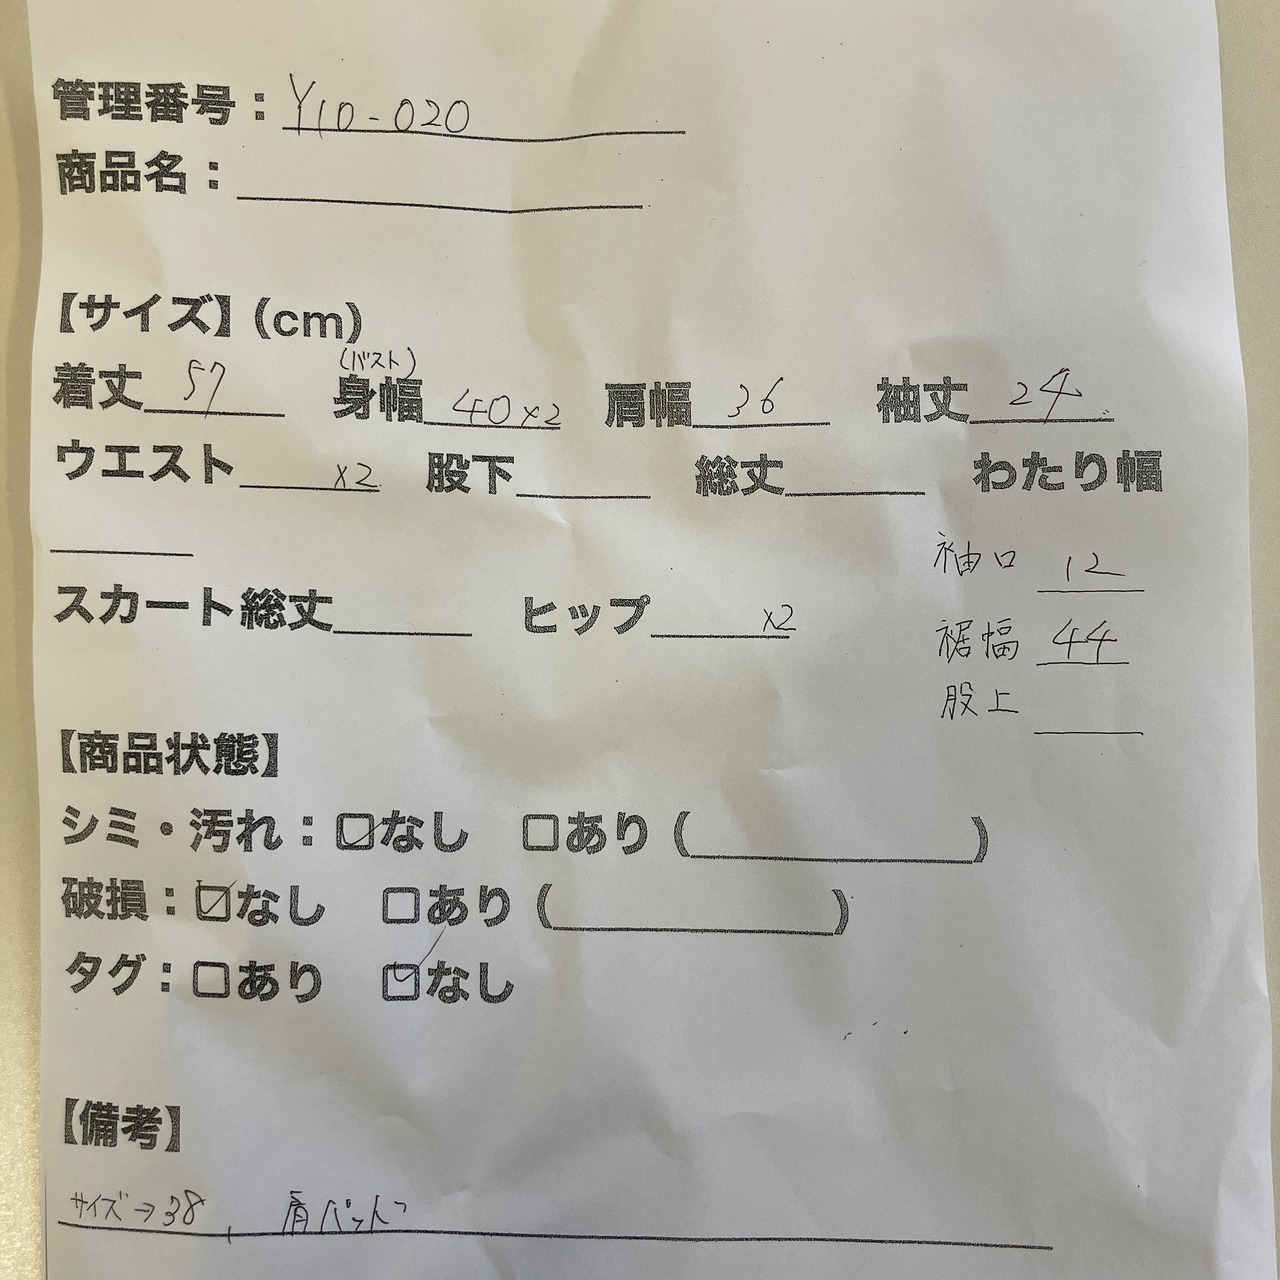 管理番号：Y10-020
商品名：
【サイズ】(cm)
着丈 57 (バスト)身幅 40×2 肩幅 36 袖丈 24
ウエスト ×2 股下 総丈 わたり幅
袖口 12
スカート総丈 ヒップ ×2
裾幅 44
股上
【商品状態】
シミ・汚れ：☑なし □あり（ ）
破損：☑なし □あり（ ）
タグ：□あり ☑なし
【備考】
サイズ→38、肩パット